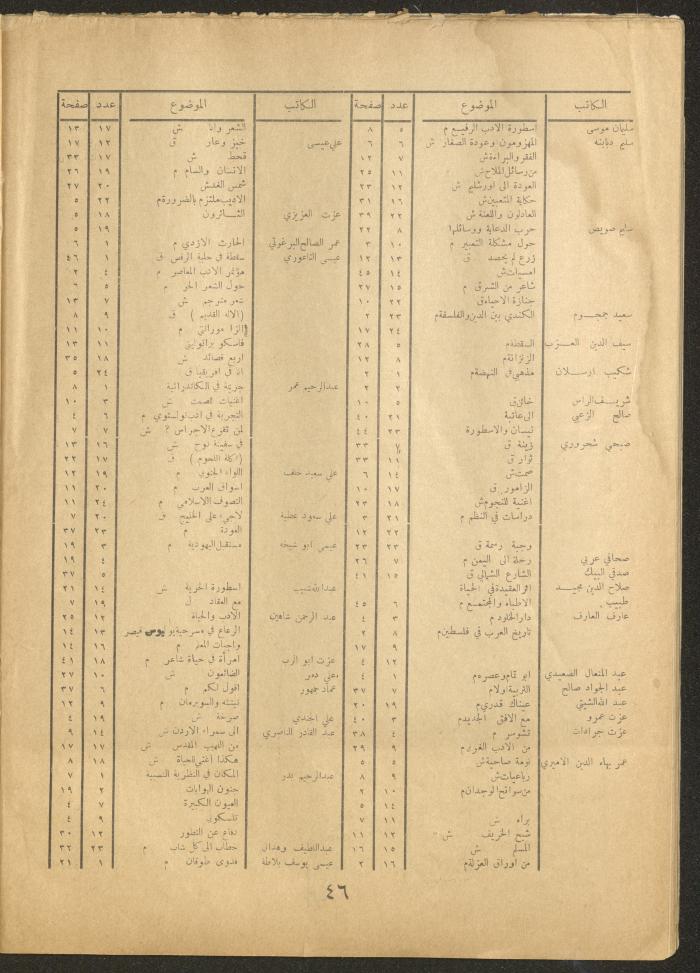 الكاتب الموضوع عدد صفحة
سليمان موسى اسطورة الادب الرفيع م ٥ ٨
سليم دبابنه المهزومون وعودة الصغار ش ٦ ٦
الفقر والبراءة ش ٧ ١٢
من رسائل الملاح ش ١١ ٢٥
العودة الى اورشليم ش ١٢ ٢٣
حكاية المتعبين ش ١٦ ٣١
العادلون واللعنة ش ٢٢ ٣٩
سليم صويص حرب الدعاية ووسائلها ٨ ٢٢
حول مشكلة التعبير م ١٠ ٣
زرع لم يحصد ق ١٣ ١٢
امسيات ش ١٤ ٤٥
شاعر من الشرق م ١٥ ٢٧
جنازة الاحياء ق ٢٢ ١٠
سعيد جمجوم الكندي بين الدين والفلسفة م ٢٣ ٢
٢٤ ١٧
سيف الدين العزب السقطة م ٥ ٢٨
الزنزانة م ٨ ١٢
شكيب ارسلان مذهبي في النهضة م ١ ٢
٢ ٢
شريف الراس خائن ق ٥ ١٠
صالح الزعبي الى عائمة ٢١ ٤٠
نيسان والاسطورة ٢٣ ٤٤
صبحي شحروري زينة ق ٧ ٣٣
ثوار ق ١١ ٣٣
صمت ش ١٤ ٦
الزامور ق ١٧ ١٠
اغنية للنجوم ش ١٨ ٢٣
دراسات في النظم م ٢١ ٣
٢٢ ١٢
وجبة رسمة ق ٢٣ ٢٣
صحافي عربي رحلة الى اليمن م ٧ ٢٦
صدقي البيك الشارع الشمالي ق ١٥ ٤١
صلاح الدين مجيد اثر العقيدة في الحياة
طبيب الاطباء والمجتمع م ٦ ٤٥
عارف العارف دار الخلود م ٣ ٤
تاريخ العرب في فلسطين م ٨ ٢
٩ ١٧
١٢ ٤
عبد المتعال الصعيدي ابو تمام وعصره م ١ ٤
عبد الجواد صالح التربية اولا م ٧ ٣٧
عبد الله الشيتي عيناك قدري م ١٩ ٢٠
عزت عمرو مع الافق الجديد م ٣ ٤٠
عزت جرادات تشوسر م ٤ ٣٨
من الادب الغرد م ٩ ٢٩
عمر بهاء الدين الاميري نومة صاحية ش ٥ ٥
رباعيات ش ٩ ٨
من سوانح الوجدان م ١٠ ٢
١٤ ٥
براء ش ١١ ٧
شبح الخريف ش ١٢ ١١
المسلم ش ١٥ ١٦
من اوراق العزلة م ١٦ ٢
الكاتب الموضوع عدد صفحة
الشعر وانا ش ١٧ ١٣
علي عيسى خبز وعار ق ١٢ ١٧
قحط ش ١٧ ٣٣
الانسان والسام م ١٩ ٢٦
شمس الغد ش ٢٠ ٢٧
الاديب ملتزم بالضرورة م ٢٢ ٥
عزت العزيزي الثائرون ١٨ ٥
١٩ ٥
عمر الصالح البرغوثي الحارث الازدي م ١ ٦
عيسى الناعوري سقطة في حلبة الرقص ق ١ ٤٦
مؤتمر الادب المعاصر م ٤ ٢
حول الشعر الحر م ٥ ٦
شعر مترجم ش ٧ ١٣
(الاله القديم) ق ٩ ٨
الزا مورانتي م ١٠ ١١
فاسكو براتوليني ١١ ١٣
اربع قصائد ش ١٨ ٣٥
انا في افريقيا ق ٢٤ ٥
عبد الرحيم عمر جريمة في الكاتدرائية ١ ٨
اغنيات للصمت ش ٣ ١٠
التجربة في ادب تولستوي م ٦ ٤
لمن تقرع الاجراس ؟ ش ٧ ٧
في سفينة نوح ش ١٦ ١٣
(اكلة اللحوم) ق ١٧ ٢٢
علي سعيد خلف اللواء الجنوبي م ١٩ ١٢
اسواق العرب م ٢٠ ١١
التصوف الاسلامي م ٢٤ ١١
علي سعود عطية لاجيء على الخليج ق ٢٠ ٧
العودة م ٢٣ ٣٧
عيسى ابو شيخه مستقبل اليهودية م ٣ ١٩
٤ ١٩
٥ ٣٧
عبد الله شبيب اسطورة الحرية ش ١٤ ٢١
مع العقاد ل ١٩ ٧
عبد الرحمن شاهين الادب والحياة ١٢ ٢٥
الرعاع في مسرحية يوليوس قيصر ١٣ ١٤
واجبات المعلم م ١٦ ١٤
عزت ابو الرب امرأة في حياة شاعر م ١٨ ٤١
علي دمر الضائعون ش ١٠ ٢٧
عماد جمهور اقول لكم م ٦ ٣٧
نيتشه والسوبرمان م ٩ ١٢
علي الجندي صرخة ش ١٩ ٤
عبد القادر الناصري الى سمراء الاردن ش ١٤ ٩
من اللهيب المقدس ش ١٧ ١٧
هكذا اغني للحياة ش ١٨ ٨
عبد الرحيم بدر المكان في النظرية النسبية ١ ٧
جنون البوابات ٢ ١٩
العيون الكبيرة ٧ ٤
تلسكوبي ٩ ٤
دفاع عن التطور ١٢ ٣٠
عبد اللطيف وهدان خطاب الى كل شاب م ٢٣ ٣٢
عيسى يوسف بلاطة فدوى طوقان م ١ ٢١
٤٦